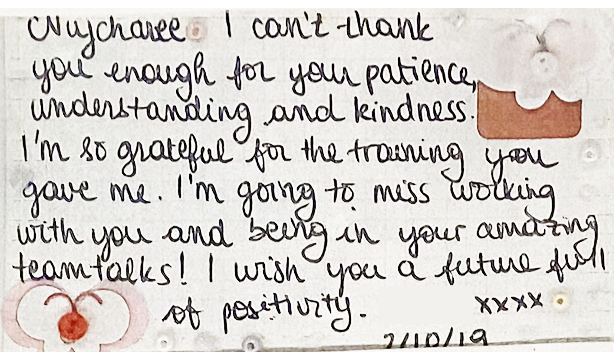 Nujcharee I can't thank
you enough for your patience,
understanding and kindness.
I'm so grateful for the training you
gave me. I'm going to miss working
with you and being in your amazing
teamtalks! I wish you a future full
of positivity. xxxx
2/10/19